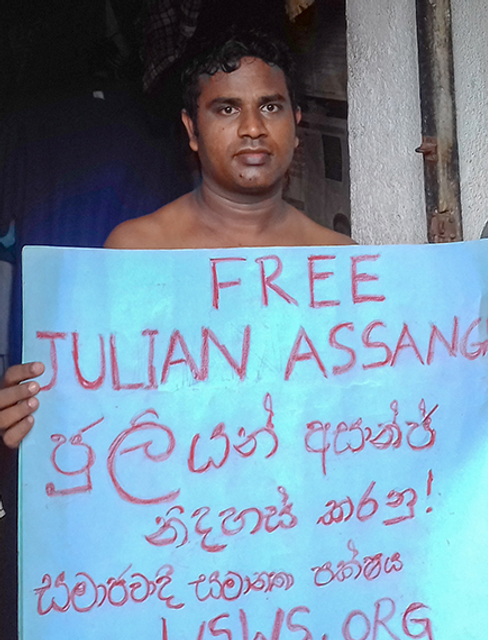 FREE
JULIAN ASSANG
ජුලියන් අසාන්ජ්
නිදහස් කරනු!
සමාජවාදී සමානතා පක්ෂය
WSWS.ORG